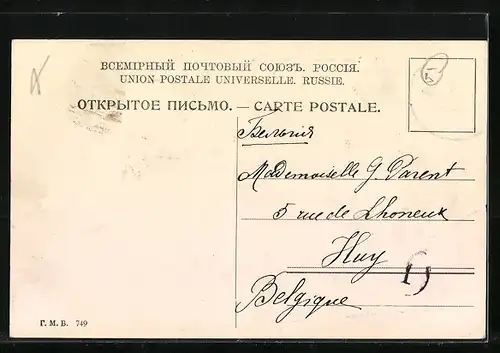 ВСЕМІРНЫЙ ПОЧТОВЫЙ СОЮЗЪ. РОССІЯ.
UNION POSTALE UNIVERSELLE. RUSSIE.
ОТКРЫТОЕ ПИСЬМО. — CARTE POSTALE.
Бельгия
Mademoiselle G. Parent
5 rue de Lhoneux
Huy
Belgique
Г. М. Б. 749